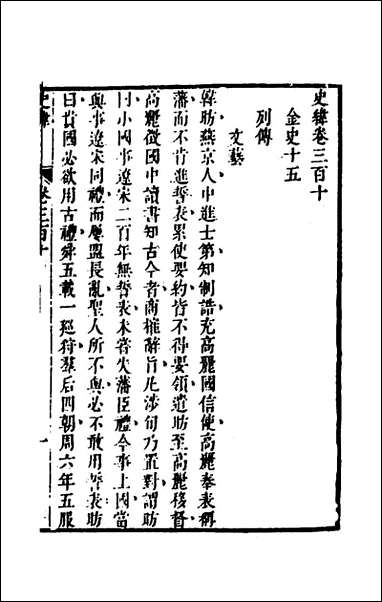 史緯卷三百十
金史十五
列傳
文藝
韓昉燕京人中進士第知制誥充高麗國信使高麗奉表稱
藩而不肯進誓表累使要約皆不得要領遣昉至高麗移督
高麗徵國中讀書知古今者商搉辭旨凡涉旬乃置對謂昉
曰小國事遼宋二百年無誓表未嘗失藩臣禮今事上國當
與事遼宋同禮而屢盟長亂聖人所不與必不敢用誓表昉
曰貴國必欲用古禮舜五載一廵狩羣后四朝周六年五服
史緯
卷三百十
一